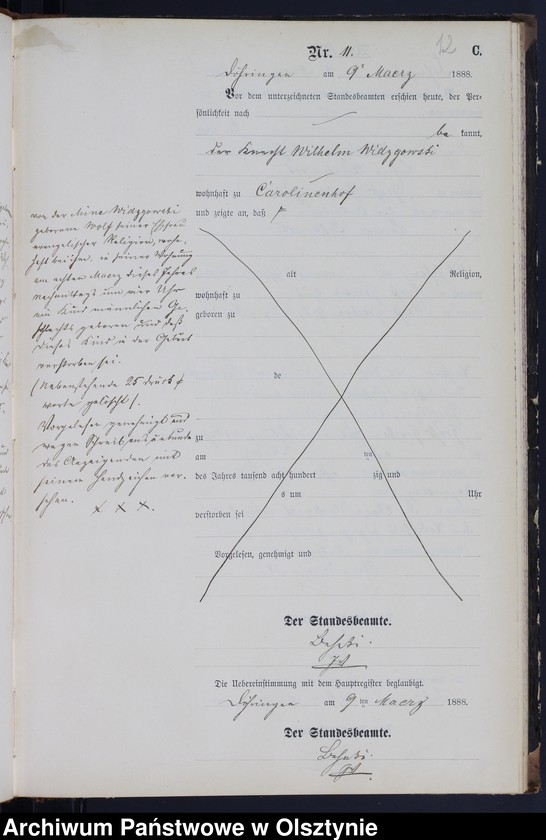 12
Nr. 11. C.
Döhringen am 9ᵗ Maerz 1888.
Vor dem unterzeichneten Standesbeamten erschien heute, der Per-
sönlichkeit nach
be kannt,
der Knecht Wilhelm Widzgowski
wohnhaft zu Carolinenhof
und zeigte an, daß
von der Mina Widzgowski
geborene Wolf seiner Ehefrau
evangelischer Religion, wohn-
haft bei ihm, in seiner Wohnung
am achten Maerz dieses Jahres
nachmittags um vier Uhr
ein Kind männlichen Ge-
schlechts geboren und daß
dieses Kind in der Geburt
verstorben sei.
(Nebenstehende 25 Druck
worte gelöscht).
Vorgelesen genehmigt und
wegen Schreibensunkunde
des Anzeigenden mit
seinem Handzeichen ver-
sehen.
x x x.
alt Religion,
wohnhaft zu
geboren zu
de
zu
am ten
des Jahres tausend acht hundert zig und
s um Uhr
verstorben sei
Vorgelesen, genehmigt und
Der Standesbeamte.
Die Uebereinstimmung mit dem Hauptregister beglaubigt.
Döhringen am 9 ten Maerz 1888.
Der Standesbeamte.
Archiwum Państwowe w Olsztynie